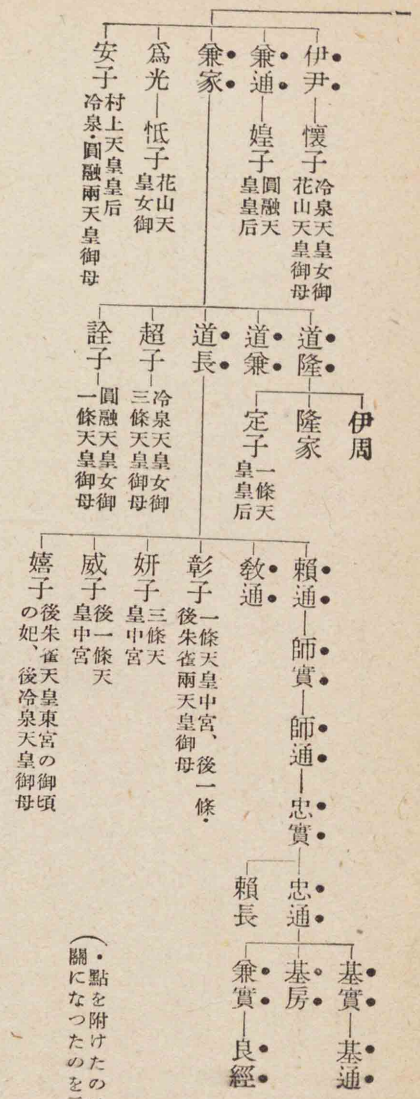 伊尹
懷子
冷泉天皇女御
花山天皇御母
兼通
媓子
圓融天
皇皇后
兼家
爲光
怟子
花山天
皇女御
安子
村上天皇皇后
冷泉・圓融兩天皇御母
道隆
伊周
隆家
定子
一條天
皇皇后
道兼
道長
超子
冷泉天皇女御
三條天皇御母
詮子
圓融天皇女御
一條天皇御母
賴通
師實
師通
忠實
敎通
彰子
一條天皇中宮、後一條・
後朱雀兩天皇御母
妍子
三條天
皇中宮
威子
後一條天
皇中宮
嬉子
後朱雀天皇東宮の御頃
の妃、後冷泉天皇御母
忠通
賴長
基實
基通
基房
兼實
良經
(・點を附けたの
關になつたのを